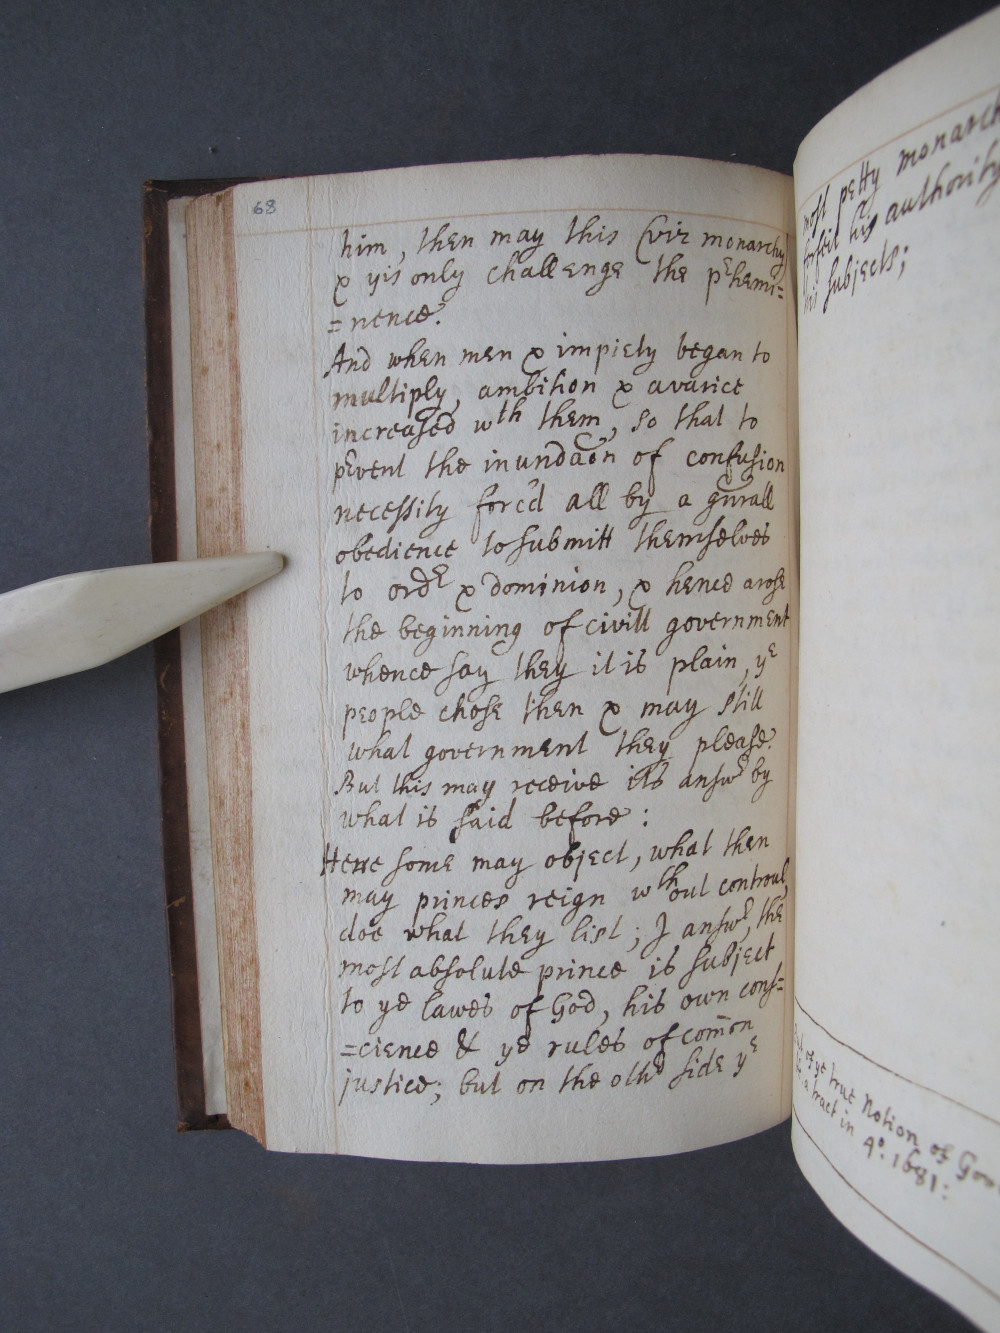 68
him, then may this (viz monarchy
& yis only challenge the p^rhemi=
=nence.
And when men & impiety began to
multiply, ambition & avarice
increased w^th them, so that to
p^revent the inundac̃on of confusion
necessity forc'd all by a gñrall
obedience to submitt themselves
to ord^r & dominion, & hence arose
the beginning of civill government
whence say they it is plain, y^e
people chose then & may still
what government they please.
But this may receive its answ^r by
what is said before :
Here some may object, what then
may princes reign w^thout controul,
doe what they list; I answ^r, the
most absolute prince is subject
to ye lawes of God, his own cons=
=cience & ye rules of com̃on
justice; but on the oth^r side y^e
most petty monarch
forfeit his authority
his subjects;
of ye true Notion of Gov
a tract in 4^o. 1681: